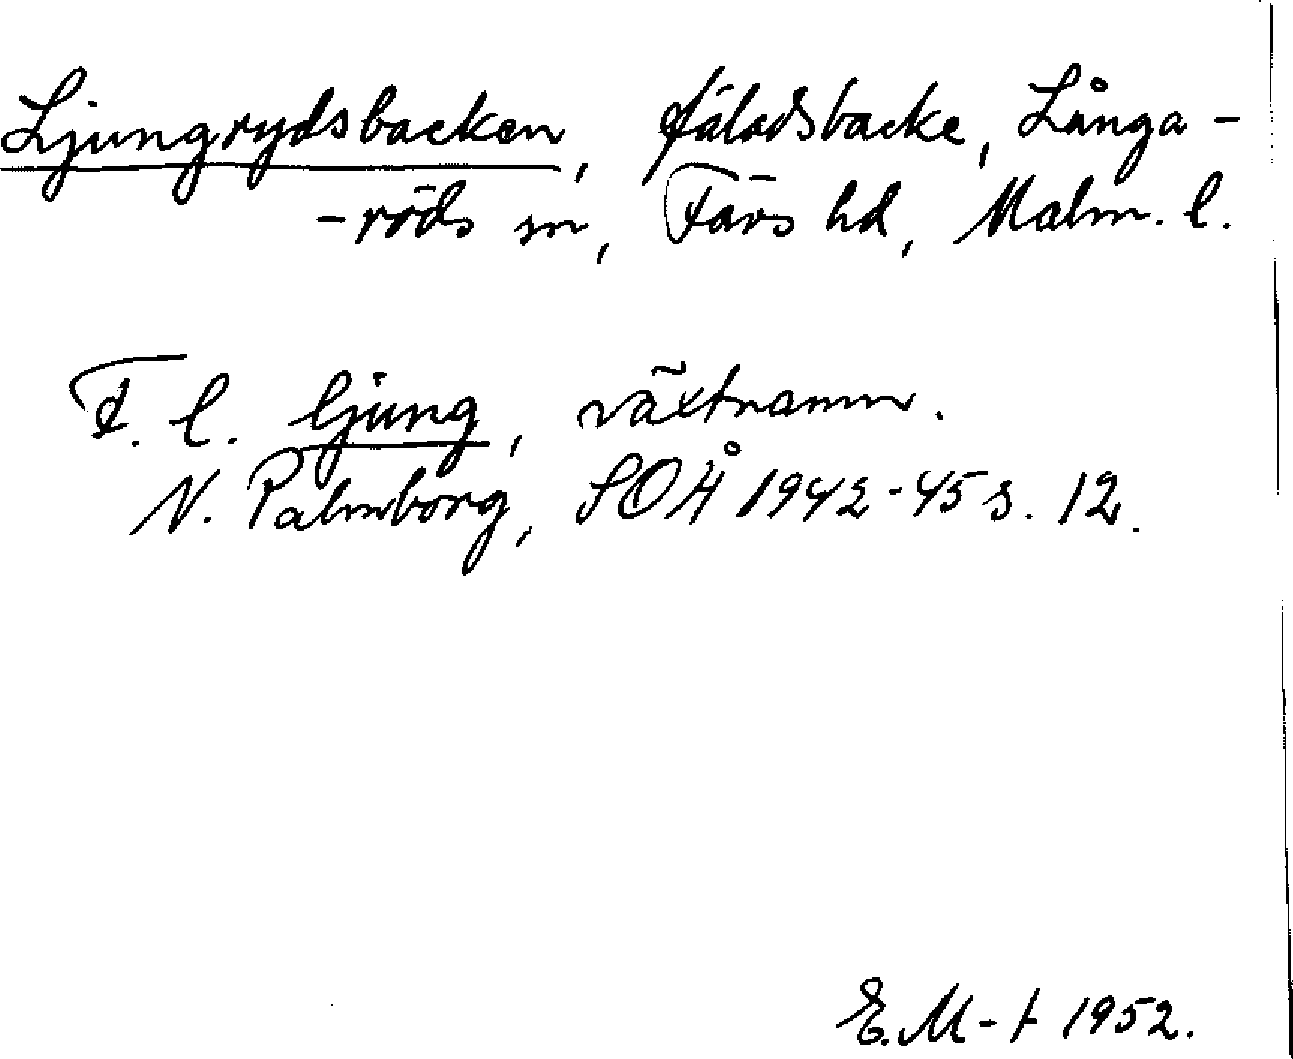 Ljungrydsbacken, fäladsbacke, Långa-
-röds sn, Färs hd, Malm. l.
F. l. ljung, växtnamn.
N. Palmborg, SOÅ 1942-45 s. 12.
E. M-t 1952.